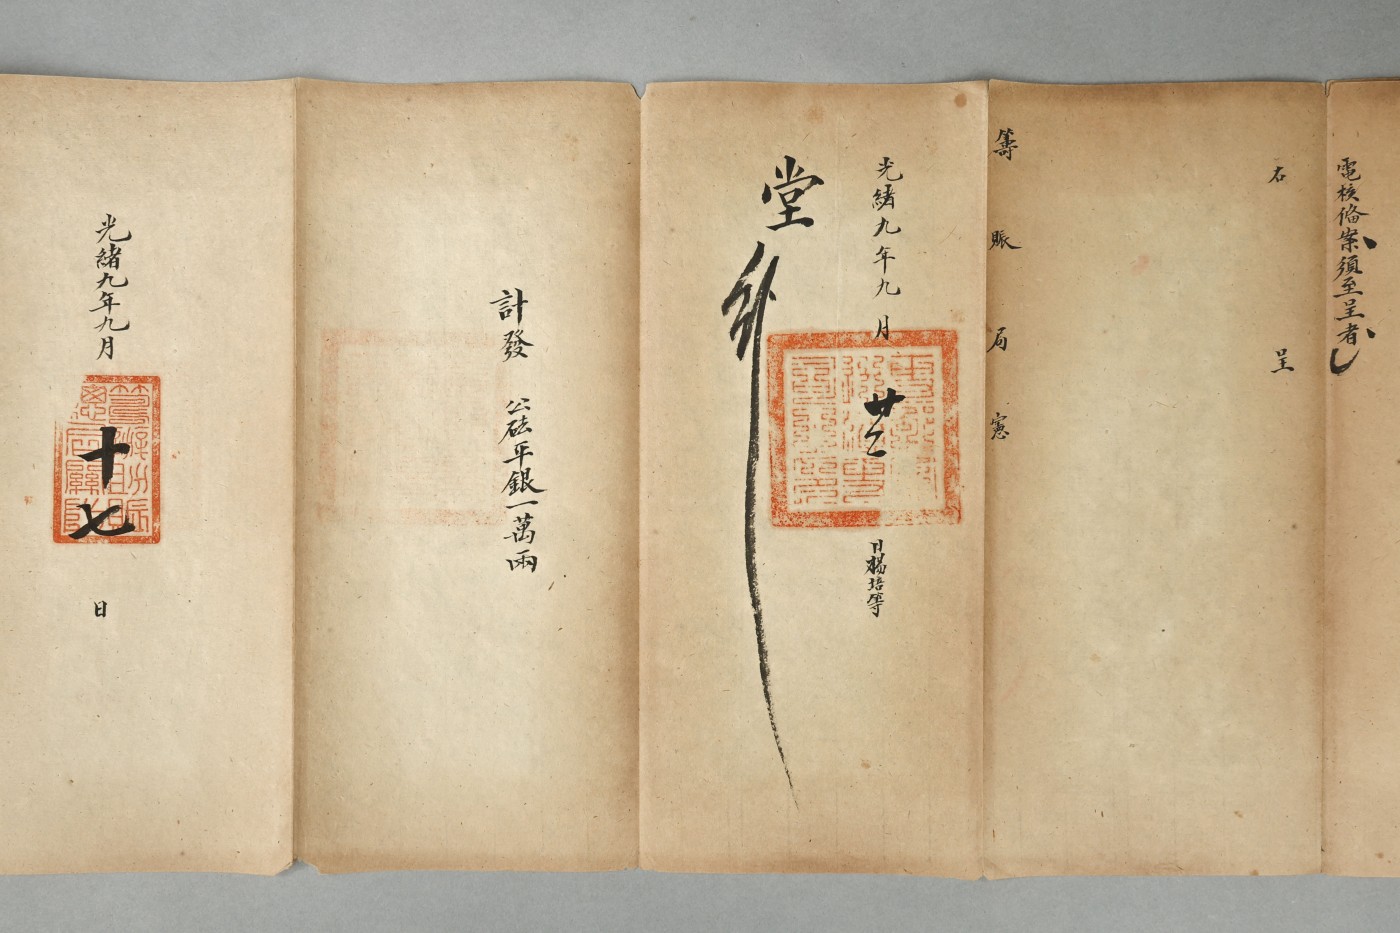 電核備案須至呈者
右呈
籌賑局憲
光緒九年九月廿二日楊培等
堂
計發 公砝平銀一萬兩
光緒九年九月十七日